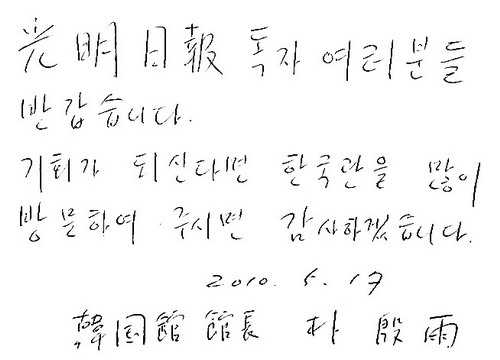 光明日報 독자 여러분들
반갑습니다.
기회가 되신다면 한국관을 많이
방문하여 주시면 감사하겠습니다.
2010. 5. 17
韓国館 館長 朴 殷 雨